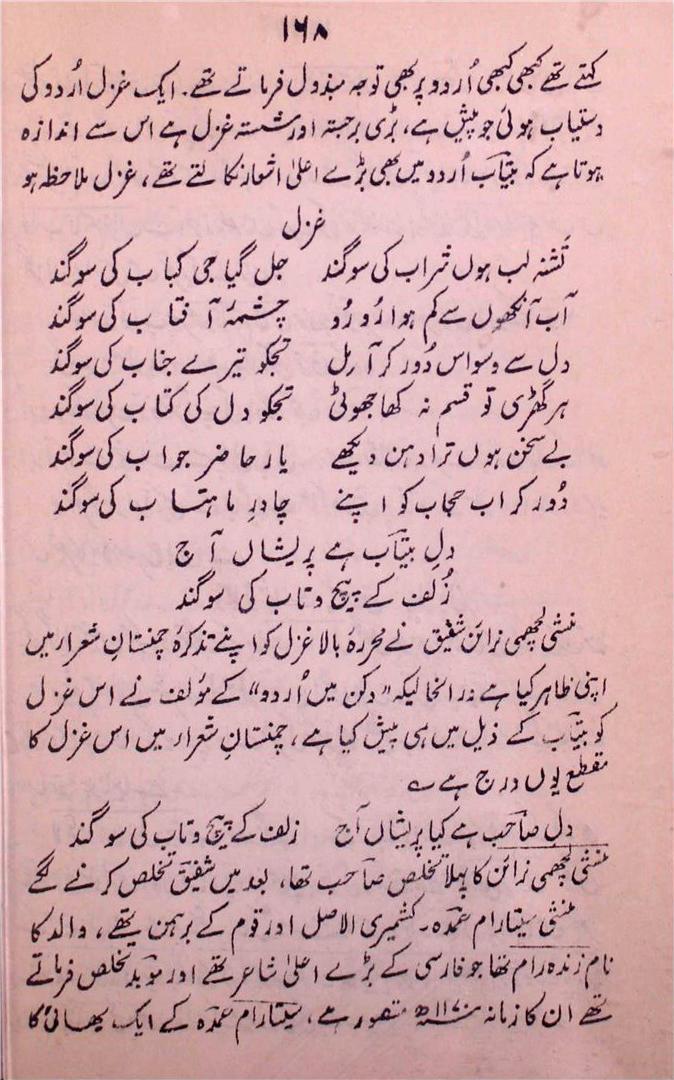 ۱۶۸
کہتے تھے کبھی کبھی اُردو پر بھی توجہ مبذول فرماتے تھے۔ ایک غزل اُردو کی
دستیاب ہوئی جو پیش ہے، بڑی برجستہ اور شستہ غزل ہے اس سے اندازہ
ہوتا ہے کہ بیتاب اُردو میں بھی بڑے اعلیٰ اشعار نکالتے تھے، غزل ملاحظہ ہو
غزل
تشنہ لب ہوں شراب کی سوگند جل گیا جی کباب کی سوگند
آب آنکھوں سے کم ہوا رُو رُو چشمۂ آفتاب کی سوگند
دل سے وسواس دُور کر آ مل تجکو تیرے جناب کی سوگند
ہر گھڑی تو قسم نہ کھا جھوٹی تجکو دل کی کتاب کی سوگند
بے سخن ہوں ترا دہن دیکھے یار حاضر جواب کی سوگند
دُور کر اب حجاب کو اپنے چادرِ ماہتاب کی سوگند
دلِ بیتاب ہے پریشاں آج
زُلف کے پیچ و تاب کی سوگند
منشی لچھمی نرائن شفیق نے محررہ بالا غزل کو اپنے تذکرہ چمنستانِ شعراء میں
اپنی ظاہر کیا ہے درانحالیکہ "دکن میں اُردو" کے مؤلف نے اس غزل
کو بیتاب کے ذیل میں ہی پیش کیا ہے، چمنستانِ شعراء میں اس غزل کا
مقطع یوں درج ہے ؎
دل صاحب ہے کیا پریشاں آج زلف کے پیچ و تاب کی سوگند
منشی لچھمی نرائن کا پہلا تخلص صاحب تھا، بعد میں شفیق تخلص کرنے لگے
منشی سیتارام عمدہ۔ کشمیری الاصل اور قوم کے برہمن تھے، والد کا
نام زندہ رام تھا جو فارسی کے بڑے اعلیٰ شاعر تھے اور موبد تخلص فرماتے
تھے ان کا زمانہ ۱۱۷۰ھ متصور ہے، سیتارام عمدہ کے ایک بھائی کا